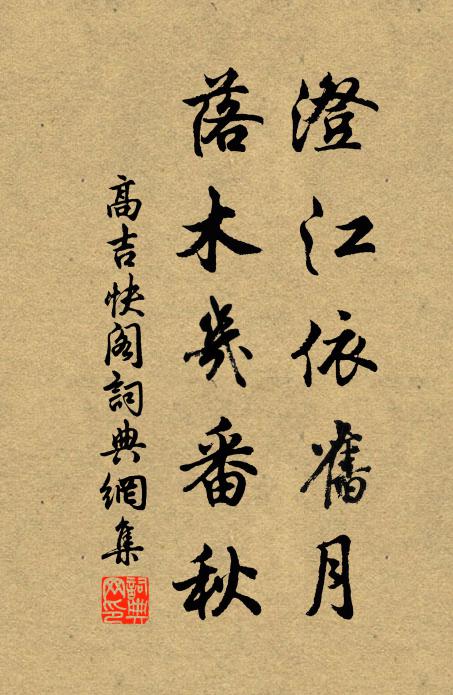 澄江依舊月
落木幾番秋
高吉快阁詞典網集
詞典网印